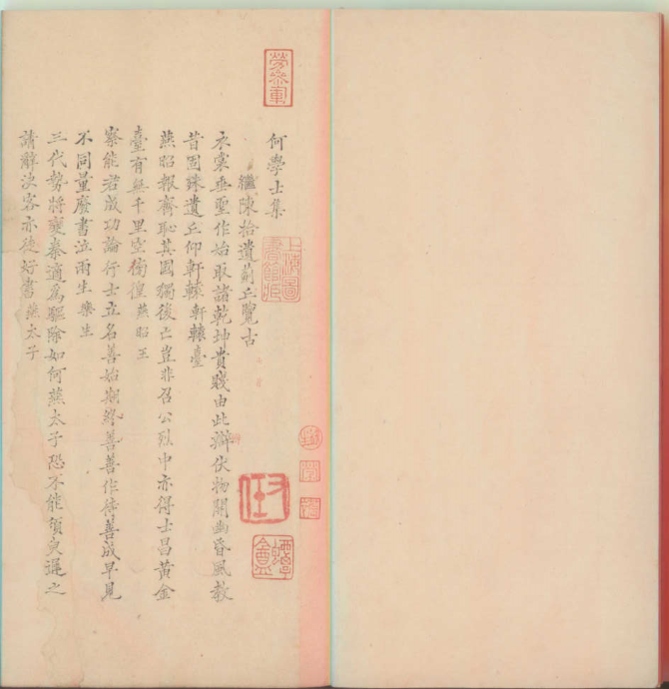 何學士集
繼陳拾遺薊丘覽古
衣裳垂聖作始取諸乾坤貴賤由此辯伏物開幽昏風教
昔固殊遺丘仰軒轅 軒轅臺
燕昭報齊恥其國獨後亡豈非召公烈中亦得士昌黃金
臺有無千里空徬徨 燕昭王
察能者成功論行士立名善始期終善善作待善成早見
不同量廢書泣兩生 樂生
三代勢將變秦適為驅除如何燕太子恐不能須臾遲之
請辭決客亦徒好書 燕太子
上海圖書館藏
勞參軍